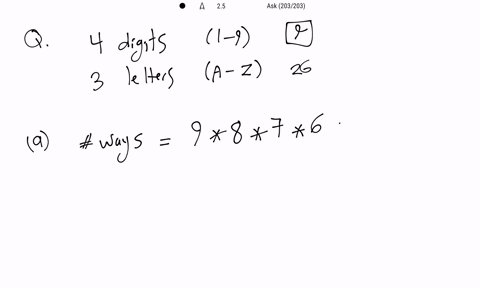 ● Δ 2.5 Ask (203/203)
Q. 4 digits (1-9) 9
3 letters (A-Z) 26
(a) # ways = 9 * 8 * 7 * 6